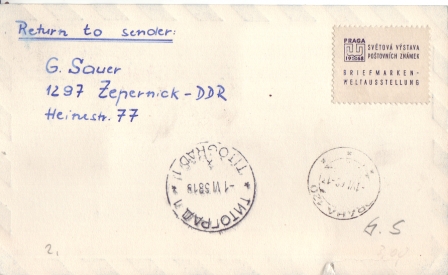 Return to sender:
G. Sauer
1297 Zepernick-DDR
Heinestr. 77
PRAGA
1968
SVĚTOVÁ VÝSTAVA
POŠTOVNÍCH ZNÁMEK
BRIEFMARKEN-
WELTAUSSTELLUNG
TITOGRAD 1
ТИТОГРАД 1
PRAHA
G.S
2.